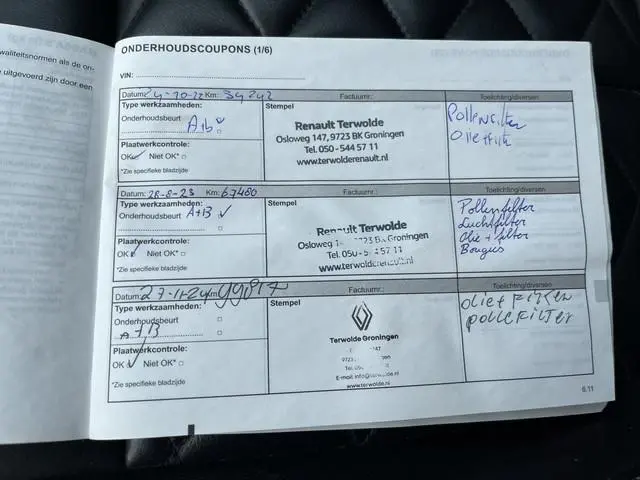 waliteitsnormen als de on-
uitgevoerd zijn door een
ONDERHOUDSCOUPONS (1/6)
VIN:
Datum: 24-10-22 Km: 34242 Factuurnr.: Toelichting/diversen
Type werkzaamheden:
Onderhoudsbeurt
A+b
Plaatwerkcontrole:
OK Niet OK*
*Zie specifieke bladzijde
Stempel
Renault Terwolde
Osloweg 147, 9723 BK Groningen
Tel. 050 - 544 57 11
www.terwolderenault.nl
Pollenfilter
Oliefilter
Datum: 28-8-23 Km: 67480 Factuurnr.: Toelichting/diversen
Type werkzaamheden:
Onderhoudsbeurt A+B
Plaatwerkcontrole:
OK Niet OK*
*Zie specifieke bladzijde
Stempel
Renault Terwolde
Osloweg 1 723 BK Groningen
Tel. 050-5 57 11
www.terwolderenault.nl
Pollenfilter
Luchtfilter
Olie + filter
Bougies
Datum: Factuurnr.: Toelichting/diversen
Type werkzaamheden:
Onderhoudsbeurt
A+B
Plaatwerkcontrole:
OK Niet OK*
*Zie specifieke bladzijde
Stempel
Terwolde Groningen
147
9723 gen
Tel. 050
E-mail: info@terwolde.nl
www.terwolde.nl
olie+ filter
pollefilter
6.11